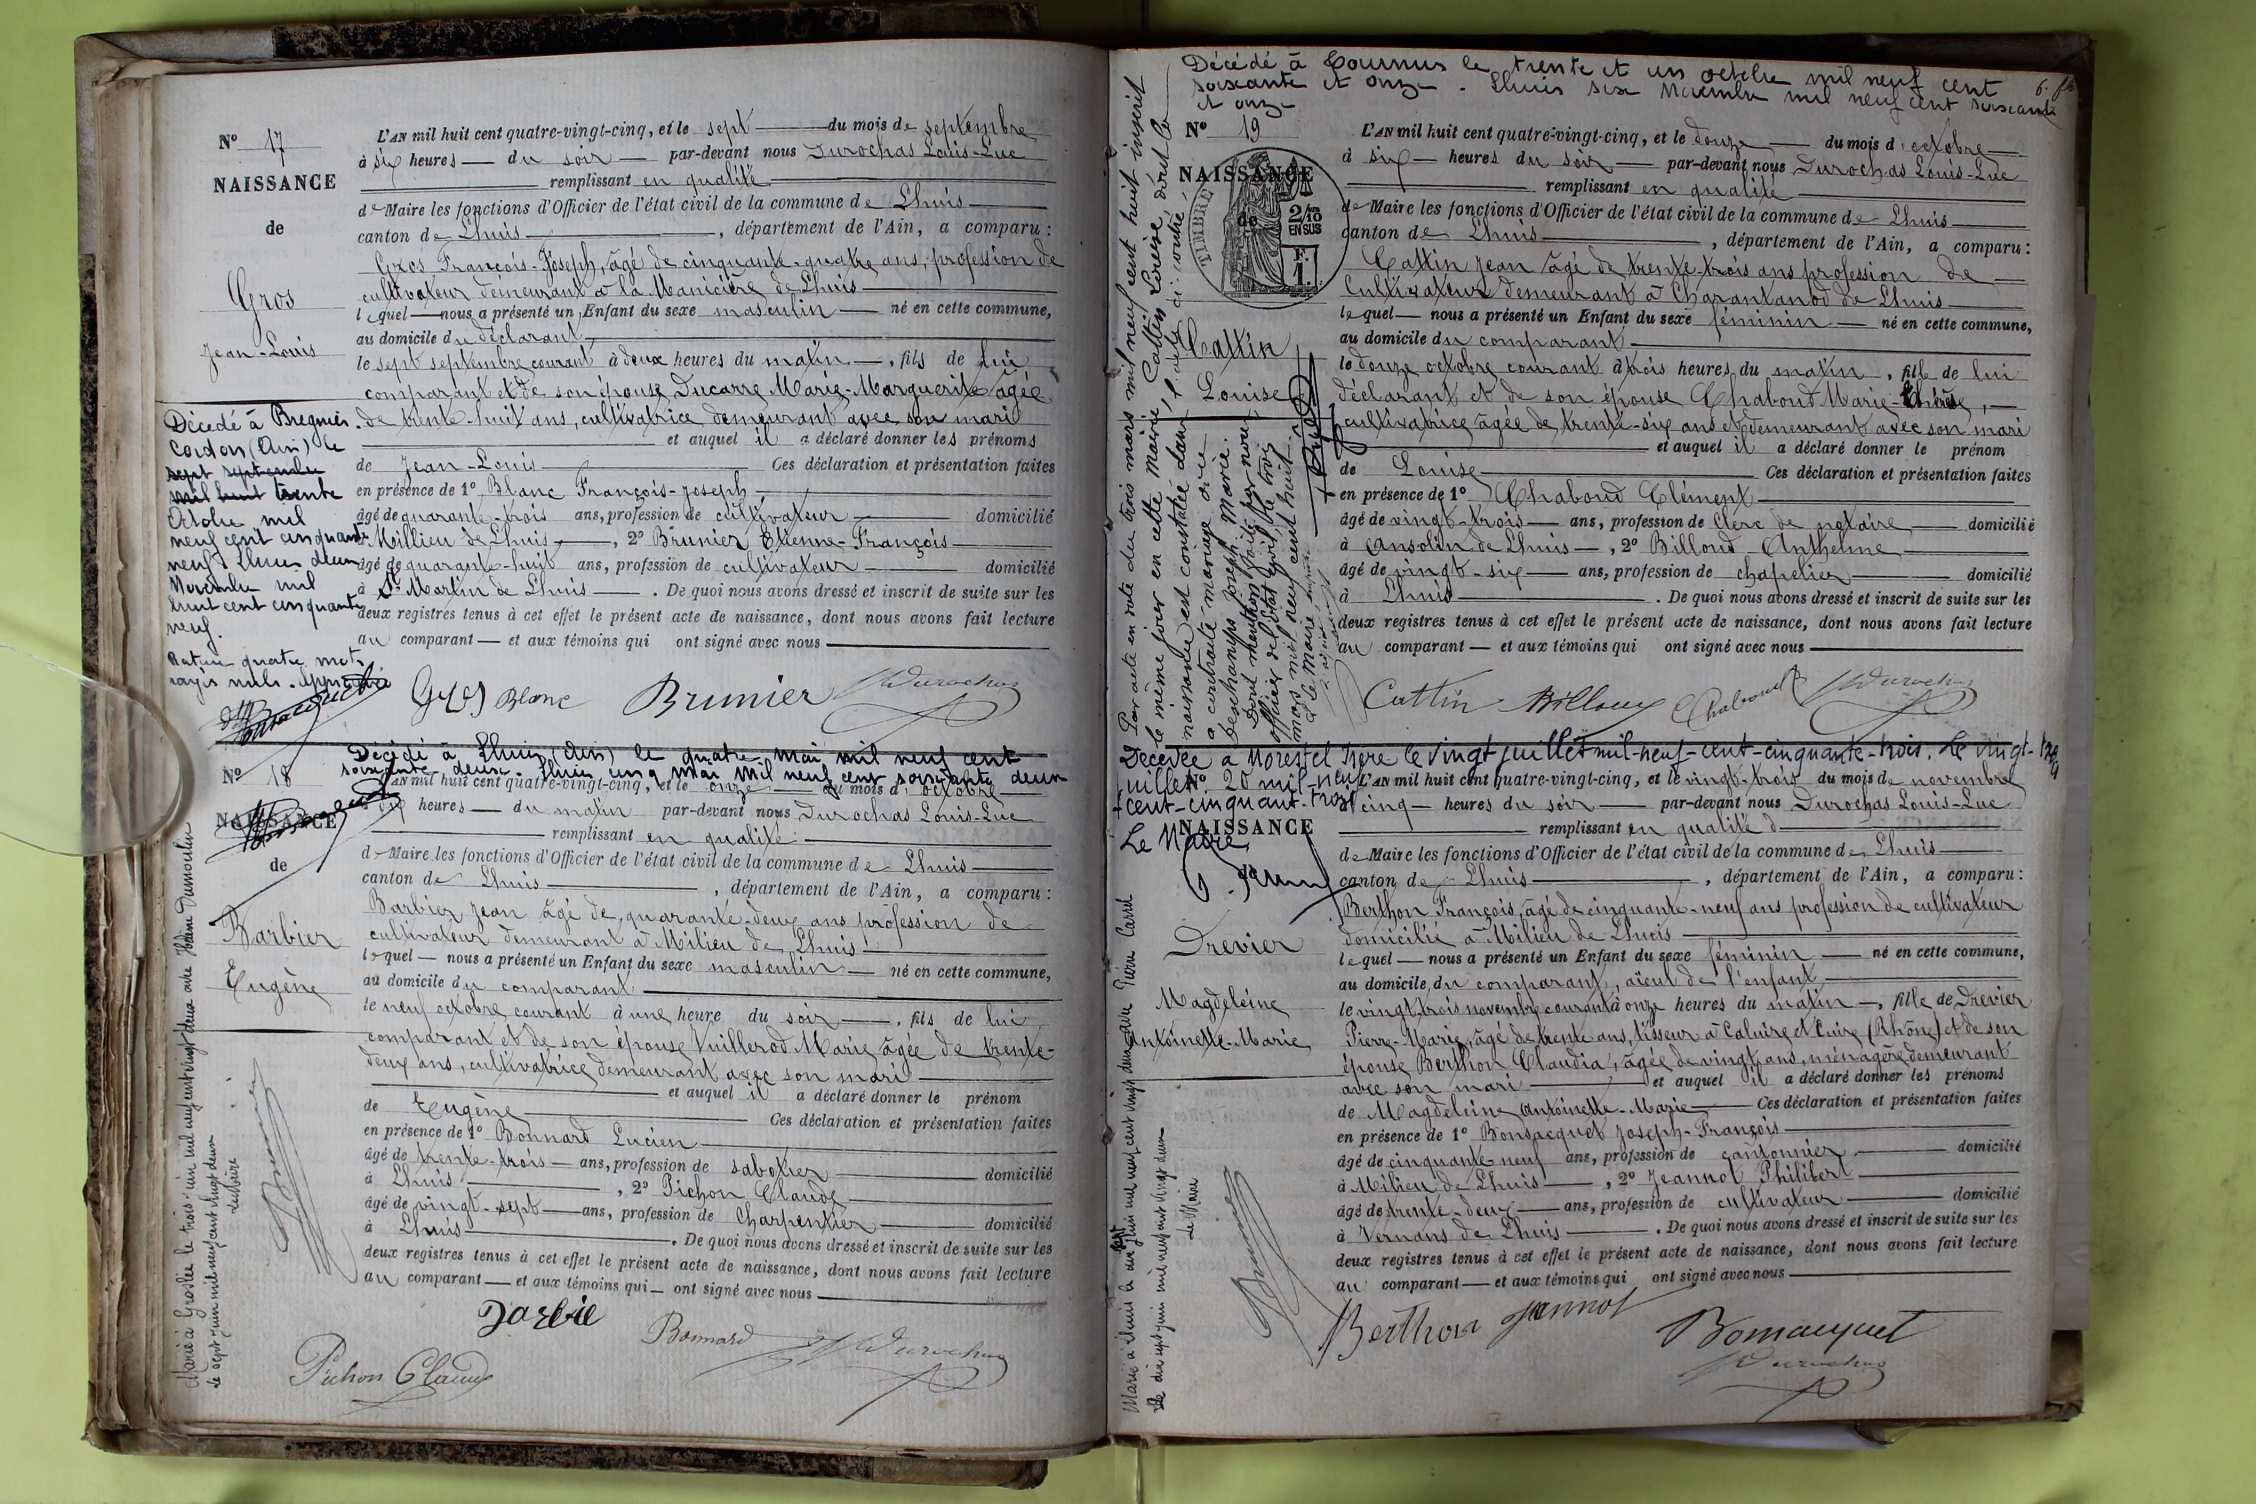 N° 17
NAISSANCE
de
Gros
Jean-Louis
L'AN mil huit cent quatre-vingt-cinq, et le sept du mois de septembre
à six heures du soir par-devant nous Durochas Louis-Luc
remplissant en qualité
de Maire les fonctions d'Officier de l'état civil de la commune de Lhuis
canton de Lhuis, département de l'Ain, a comparu :
Gros François-Joseph, âgé de cinquante-quatre ans, profession de
cultivateur demeurant à la Manicière de Lhuis
lequel nous a présenté un Enfant du sexe masculin né en cette commune,
au domicile du déclarant,
le sept septembre courant à deux heures du matin, fils de lui
comparant et de son épouse Ducarre Marie-Marguerite âgée
de trente-huit ans, cultivatrice demeurant avec son mari
et auquel il a déclaré donner les prénoms
de Jean-Louis Ces déclaration et présentation faites
en présence de 1° Blanc François-Joseph
âgé de quarante-trois ans, profession de cultivateur domicilié
à Millieu de Lhuis, 2° Brunier Etienne-François
âgé de quarante-huit ans, profession de cultivateur domicilié
à St Martin de Lhuis. De quoi nous avons dressé et inscrit de suite sur les
deux registres tenus à cet effet le présent acte de naissance, dont nous avons fait lecture
au comparant et aux témoins qui ont signé avec nous
Décédé à Bregnier.
Cordon (Ain) le
sept septembre
mil huit trente
Octobre mil
neuf cent cinquante
neuf Lhuis deux
Novembre mil
huit cent cinquante
neuf.
Rature quatre mots
rayés nuls. Approuvé
Gros Blanc Brunier Durochas
Décédé à Lhuis (Ain) le quatre mai mil neuf cent
soixante deux. Lhuis cinq Mai mil neuf cent soixante deux
N° 18
NAISSANCE
de
Barbier
Eugène
L'AN mil huit cent quatre-vingt-cinq, et le onze du mois d'octobre
à dix heures du matin par-devant nous Durochas Louis-Luc
remplissant en qualité
de Maire les fonctions d'Officier de l'état civil de la commune de Lhuis
canton de Lhuis, département de l'Ain, a comparu :
Barbier Jean âgé de quarante-deux ans profession de
cultivateur demeurant à Milieu de Lhuis
lequel nous a présenté un Enfant du sexe masculin né en cette commune,
au domicile du comparant
le neuf octobre courant à une heure du soir, fils de lui
comparant et de son épouse Vuillerod Marie âgée de trente-
deux ans, cultivatrice demeurant avec son mari
et auquel il a déclaré donner le prénom
de Eugène Ces déclaration et présentation faites
en présence de 1° Bonnard Lucien
âgé de trente-trois ans, profession de sabotier domicilié
à Lhuis, 2° Pichon Claude
âgé de vingt-sept ans, profession de Charpentier domicilié
à Lhuis. De quoi nous avons dressé et inscrit de suite sur les
deux registres tenus à cet effet le présent acte de naissance, dont nous avons fait lecture
au comparant et aux témoins qui ont signé avec nous
Marié à Groslée le trois juin mil neuf cent vingt deux avec Hélène Dumoulin
le sept juin mil neuf cent vingt deux
Le Maire
Barbie
Bonnard Durochas
Pichon Claude
Décédé à Tournus le trente et un octobre mil neuf cent
soixante et onze. Lhuis six Novembre mil neuf cent soixante
et onze
N° 19
NAISSANCE
de
TIMBRE
2/10
EN SUS
1 F.
Cattin
Louise
L'AN mil huit cent quatre-vingt-cinq, et le douze du mois d'octobre
à six heures du soir par-devant nous Durochas Louis-Luc
remplissant en qualité
de Maire les fonctions d'Officier de l'état civil de la commune de Lhuis
canton de Lhuis, département de l'Ain, a comparu :
Cattin Jean âgé de trente-trois ans profession de
Cultivateur demeurant à Charantanod de Lhuis
lequel nous a présenté un Enfant du sexe féminin né en cette commune,
au domicile du comparant
le douze octobre courant à trois heures du matin, fille de lui
déclarant et de son épouse Chaboud Marie-Thérèse,
cultivatrice âgée de trente-six ans et demeurant avec son mari
et auquel il a déclaré donner le prénom
de Louise Ces déclaration et présentation faites
en présence de 1° Chaboud Clément
âgé de vingt-trois ans, profession de Clerc de notaire domicilié
à Ansolin de Lhuis, 2° Billoud Anthelme
âgé de vingt-six ans, profession de chapelier domicilié
à Lhuis. De quoi nous avons dressé et inscrit de suite sur les
deux registres tenus à cet effet le présent acte de naissance, dont nous avons fait lecture
au comparant et aux témoins qui ont signé avec nous
Par acte en date du trois mars mil neuf cent huit inscrit
le même jour en cette Mairie, Cattin Louise dont la
naissance est constatée dans l'acte ci-contre,
a contracté mariage avec
Deschamps Joseph Marie.
Dont mention faite par nous
officier de l'état civil le trois
mars mil neuf cent huit
Le Maire
Cattin Billoud Chaboud Durochas
Décédée à Morestel Isère le vingt juillet mil-neuf-cent-cinquante-trois. Le vingt-
juillet 20 mil-neuf
-cent-cinquante-trois
Le Maire
N°
NAISSANCE
Drevier
Magdeleine
Antoinette-Marie
L'AN mil huit cent quatre-vingt-cinq, et le vingt-trois du mois de novembre
à cinq heures du soir par-devant nous Durochas Louis-Luc
remplissant en qualité d
de Maire les fonctions d'Officier de l'état civil de la commune de Lhuis
canton de Lhuis, département de l'Ain, a comparu :
Berthon François, âgé de cinquante-neuf ans profession de cultivateur
domicilié à Milieu de Lhuis
lequel nous a présenté un Enfant du sexe féminin né en cette commune,
au domicile du comparant, aïeul de l'enfant
le vingt-trois novembre courant à onze heures du matin, fille de Drevier
Pierre-Marie, âgé de trente ans, tisseur à Caluire et Cuire (Rhône) et de son
épouse Berthon Claudia, âgée de vingt ans, ménagère demeurant
avec son mari et auquel il a déclaré donner les prénoms
de Magdeleine Antoinette-Marie Ces déclaration et présentation faites
en présence de 1° Bonsacquet Joseph-François
âgé de cinquante-neuf ans, profession de cantonnier domicilié
à Milieu de Lhuis, 2° Jeannot Philibert
âgé de trente-deux ans, profession de cultivateur domicilié
à Vernans de Lhuis. De quoi nous avons dressé et inscrit de suite sur les
deux registres tenus à cet effet le présent acte de naissance, dont nous avons fait lecture
au comparant et aux témoins qui ont signé avec nous
Marié à Lhuis le dix sept juin mil neuf cent vingt deux avec Pierre Carrel
le dix sept juin mil neuf cent vingt deux
Le Maire
Berthon Jannot Bonsacquet
Durochas